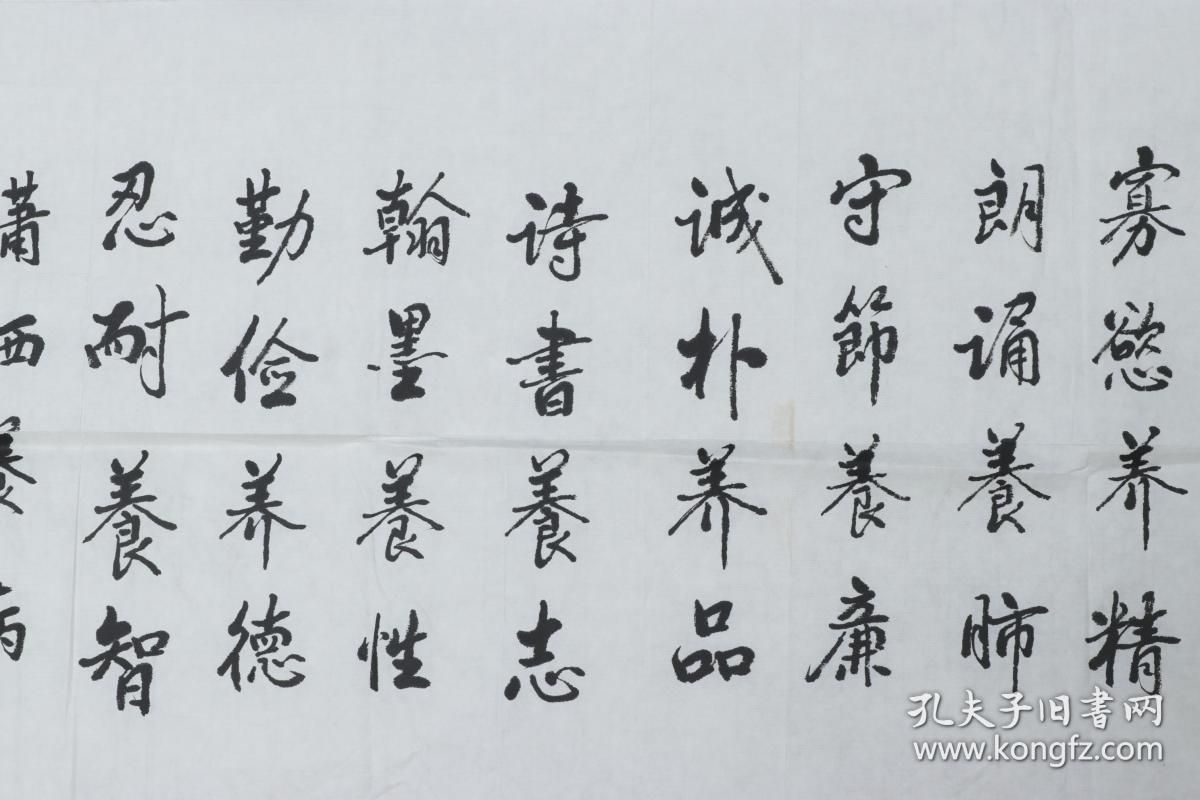 寡慾养精
朗诵養肺
守節養廉
诚朴养品
诗書養志
翰墨養性
勤俭养德
忍耐養智
孔夫子旧書网
www.kongfz.com